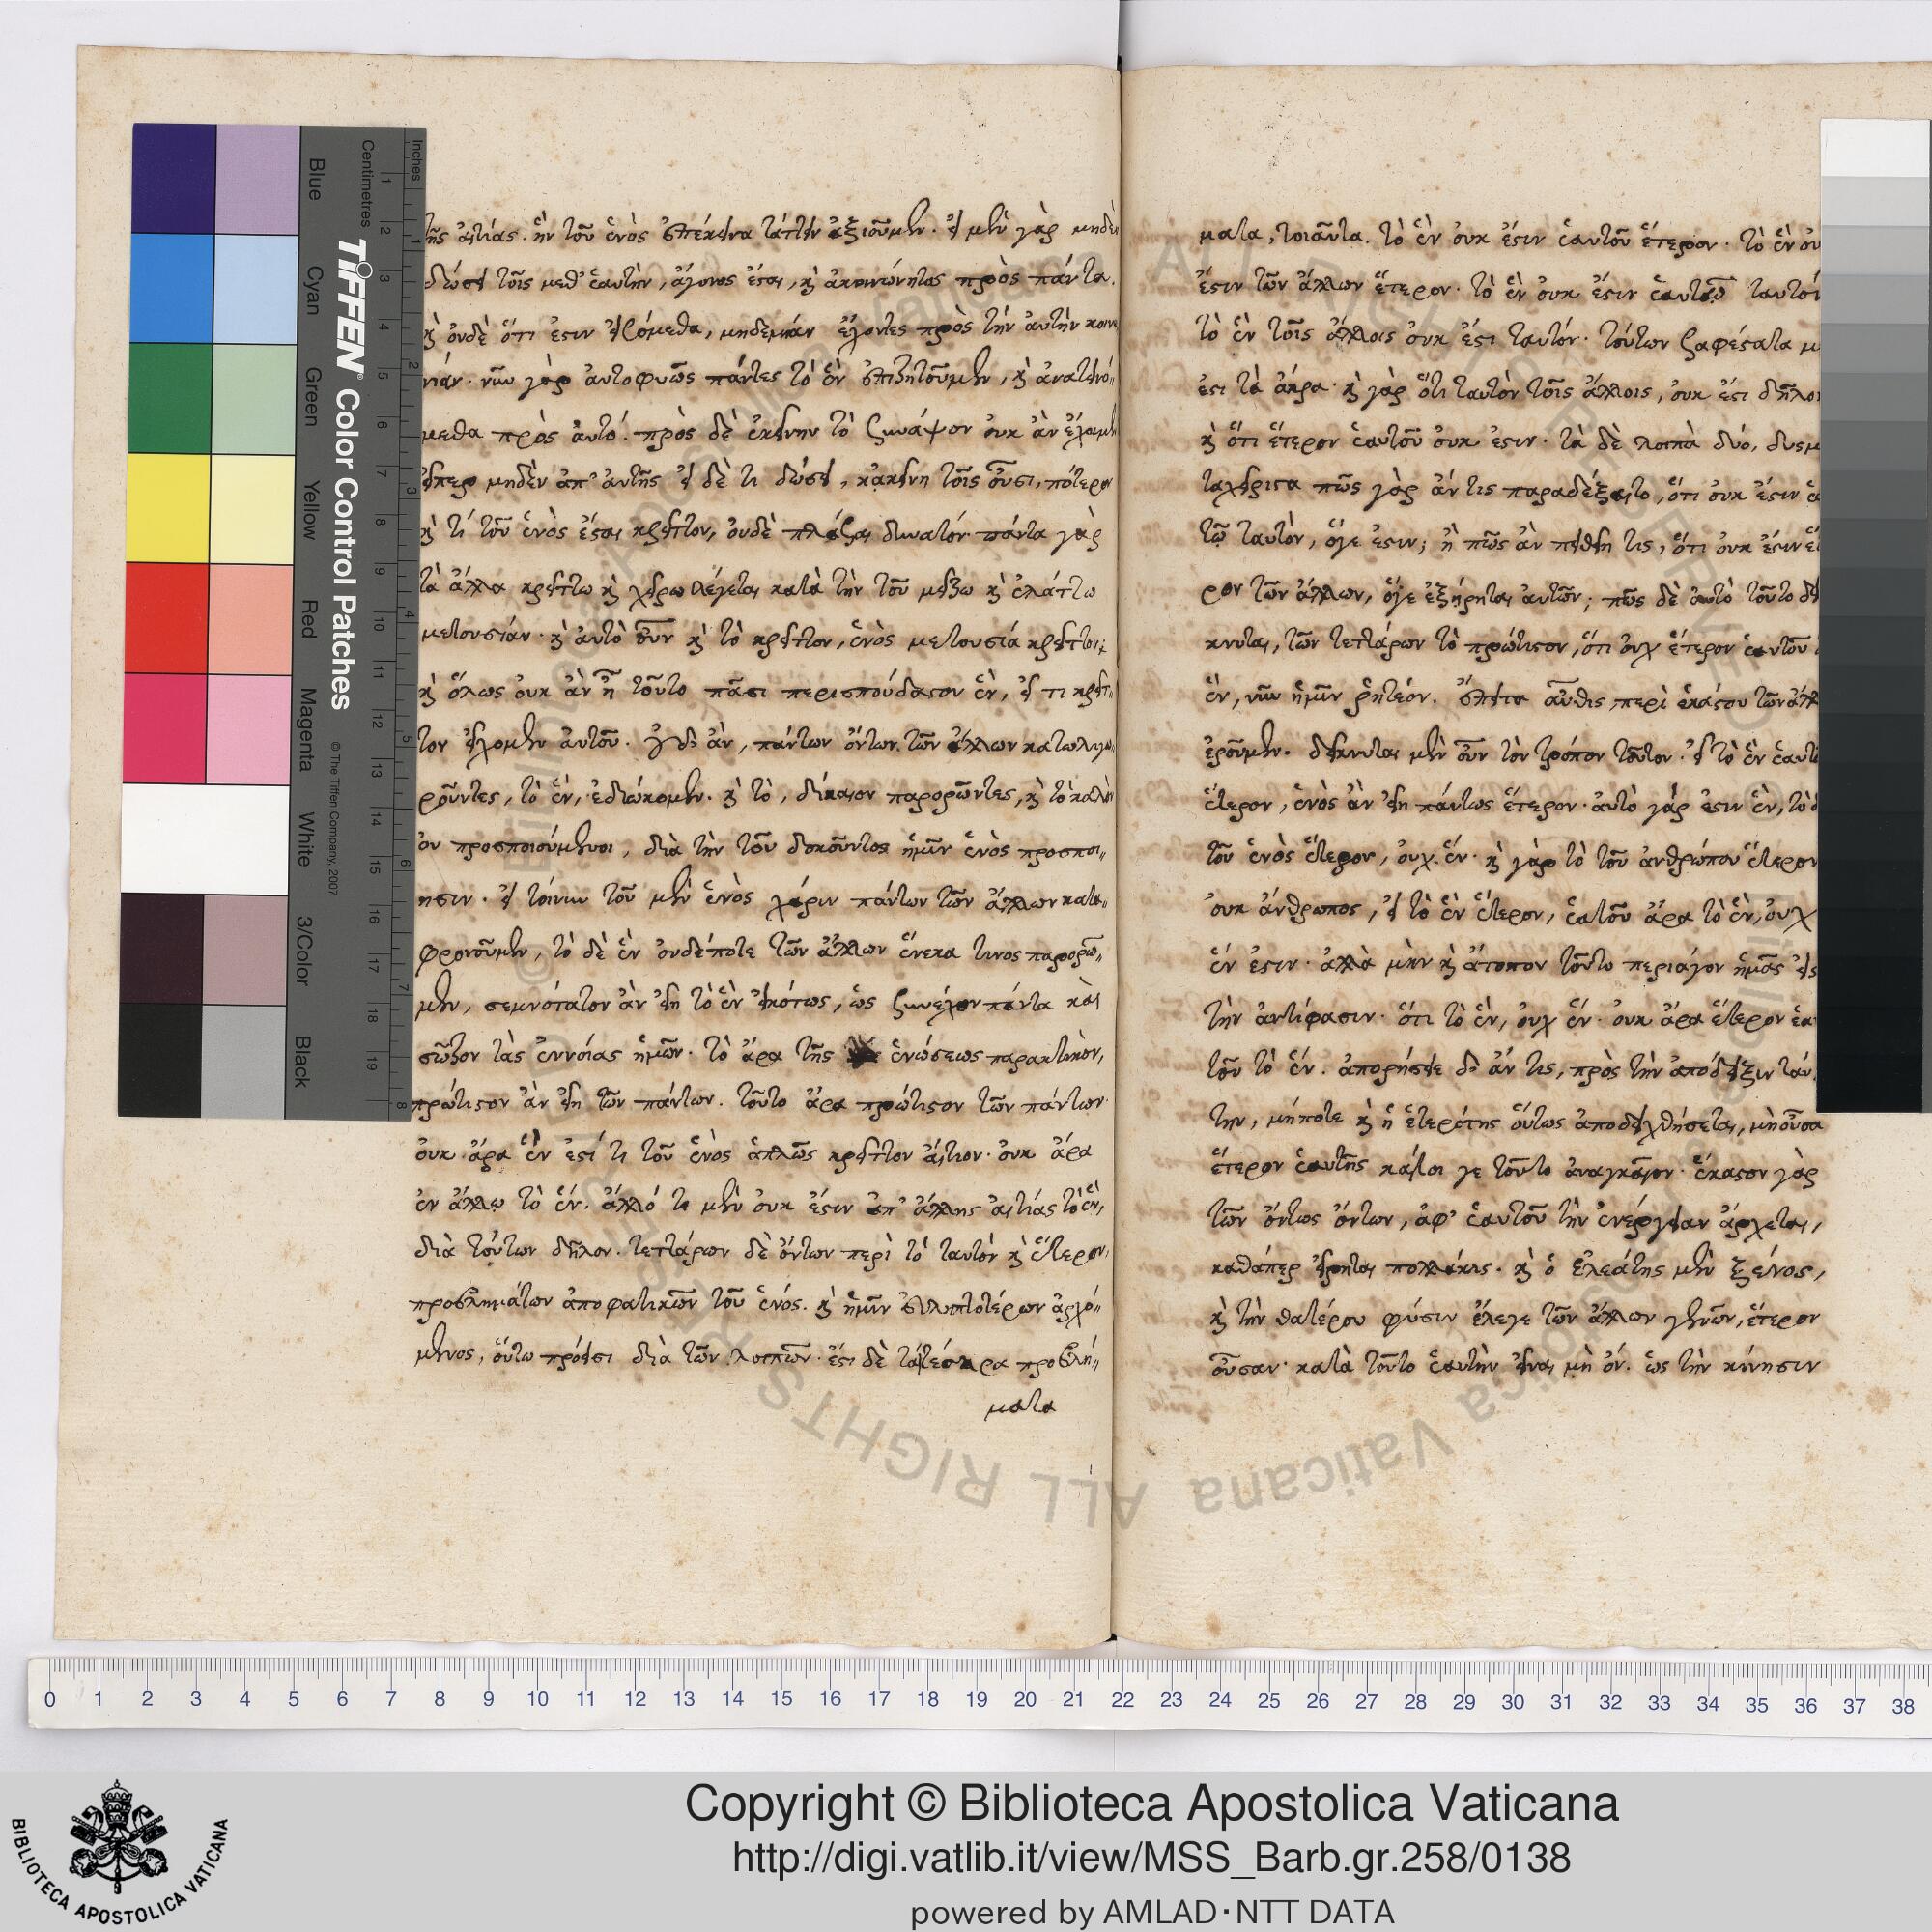 τῆς αἰτίας. ἣν τοῦ ἑνὸς ἐπέκεινα τάττειν ἀξιοῦμεν. εἰ μὲν γὰρ μηδὲν
δώσει τοῖς μεθ' ἑαυτὴν, ἄγονος ἔσται, καὶ ἀκοινώνητος πρὸς πάντα.
καὶ οὐδὲ ὅτι ἔστιν εἰσόμεθα, μηδεμίαν ἔχοντες πρὸς τὴν αὐτὴν κοινω
νίαν. νῦν γὰρ αὐτοφυῶς πάντες τὸ ἓν ἐπιζητοῦμεν, καὶ ἀνατεινό„
μεθα πρὸς αὐτό. πρὸς δὲ ἐκείνην τὸ συνάψον οὐκ ἂν ἔχοιμεν
εἴπερ μηδὲν ἀπ' αὐτῆς εἰ δέ τι δώσει, κἀκείνη τοῖς οὖσι, πότερον
καὶ τί τοῦ ἑνὸς ἔσται κρεῖττον, οὐδὲ πλάσαι δυνατόν. πάντα γὰρ
τὰ ἄλλα κρείττω καὶ χείρω λέγεται κατὰ τὴν τοῦ μείζω καὶ ἐλάττω
μετουσίαν. καὶ αὐτὸ οὖν καὶ τὸ κρεῖττον, ἑνὸς μετουσία κρεῖττον;
καὶ ὅλως οὐκ ἂν ἦ τοῦτο πᾶσι περισπούδαστον ἓν, εἴ τι κρεῖτ„
τον εἴχομεν αὐτοῦ. ἀν, πάντων ὄντων τῶν ἄλλων κατωλιγω„
ροῦντες, τὸ ἓν, ἐδιώκομεν. καὶ τὸ, δίκαιον παρορῶντες, καὶ τὸ καλὸν
οὐ προσποιούμενοι, διὰ τὴν τοῦ δοκοῦντος ἡμῖν ἑνὸς προσποί„
ησιν. εἰ τοίνυν τοῦ μὲν ἑνὸς χάριν πάντων τῶν ἄλλων κατα„
φρονοῦμεν, τὸ δὲ ἓν οὐδέποτε τῶν ἄλλων ἕνεκα τινος παρορῶ„
μεν, σεμνότατον ἂν εἴη τὸ ἓν εἰκότως, ὡς συνέχον πάντα καὶ
σῶζον τὰς ἐννοίας ἡμῶν. τὸ ἄρα τῆς ἑνώσεως παρακτικὸν,
πρώτιστον ἂν εἴη τῶν πάντων. τοῦτο ἄρα πρώτιστον τῶν πάντων.
οὐκ ἄρα ἓν ἐστί τι τοῦ ἑνὸς ἁπλῶς κρεῖττον αἴτιον. οὐκ ἄρα
ἐν ἄλλῳ τὸ ἕν. ἀλλό τι μὲν οὐκ ἔστιν ἀπ' ἄλλης αἰτίας τὸ ἓν,
διὰ τούτων δῆλον. τεττάρων δὲ ὄντων περὶ τὸ ταυτὸν καὶ ἕτερον,
προβλημάτων ἀποφατικῶν τοῦ ἑνός. καὶ ἡμῖν ἐυληπτοτέρων ἀρχό„
μενος, οὕτω πρόεισι διὰ τῶν λοιπῶν. ἔστι δὲ τὰ τέσσαρα προβλή„
ματα
ματα, τοιαῦτα. τὸ ἓν οὐκ ἔστιν ἑαυτοῦ ἕτερον. τὸ ἓν οὐ
ἔστιν τῶν ἄλλων ἕτερον. τὸ ἓν οὐκ ἔστιν ἑαυτῷ ταυτόν
τὸ ἓν τοῖς ἄλλοις οὐκ ἔστι ταυτόν. τούτων σαφέστατα μ
ἐστι τὰ ἄκρα. καὶ γὰρ ὅτι ταυτὸν τοῖς ἄλλοις, οὐκ ἔστι δῆλον
καὶ ὅτι ἕτερον ἑαυτοῦ οὐκ ἔστιν. τὰ δὲ λοιπὰ δύο, δυσμ
ταχείριστα πῶς γὰρ ἄν τις παραδέξαιτο, ὅτι οὐκ ἔστιν ἑα
τῷ ταυτὸν, ὅγε ἐστιν; ἢ πῶς ἂν πείθη τις, ὅτι οὐκ ἔστιν ἕτ
ρον τῶν ἄλλων, ὅγε ἐξῄρηται αὐτῶν; πῶς δὲ αὐτὸ τοῦτο δεί
κνυται, τῶν τεττάρων τὸ πρώτιστον, ὅτι οὐχ ἕτερον ἑαυτοῦ
ἓν, νῦν ἡμῖν ῥητέον. ἔπειτα αὖθις, περὶ ἑκάστου τῶν ἄλλ
ἐροῦμεν. δείκνυται μὲν οὖν τὸν τρόπον τοῦτον. εἰ τὸ ἓν ἑαυτ
ἕτερον, ἑνὸς ἂν εἴη πάντως ἕτερον. αὐτὸ γάρ ἐστιν ἓν, τὸ δ
τοῦ ἑνὸς ἕτερον, οὐχ ἕν. καὶ γὰρ τὸ τοῦ ἀνθρώπου ἕτερον
οὐκ ἄνθρωπος, εἰ τὸ ἓν ἕτερον, ἑατοῦ ἄρα τὸ ἓν, οὐχ
ἕν ἐστιν. ἀλλὰ μὴν καὶ ἄτοπον τοῦτο περιάγον ἡμᾶς εἰς
τὴν ἀντίφασιν. ὅτι τὸ ἓν, οὐχ ἕν. οὐκ ἄρα ἕτερον ἑα
τοῦ τὸ ἕν. ἀπορήσειε δ' ἄν τις, πρὸς τὴν ἀπόδειξιν ταύ
την, μήποτε καὶ ἡ ἑτερότης οὕτως ἀποδειχθήσεται, μὴ οὖσα
ἕτερον ἑαυτῆς καίτοι γε τοῦτο ἀναγκαῖον. ἕκαστον γὰρ
τῶν ὄντως ὄντων, ἀφ' ἑαυτοῦ τὴν ἐνέργειαν ἄρχεται,
καθάπερ εἴρηται πολλάκις. καὶ ὁ ἐλεάτης μὲν ξεῖνος,
καὶ τὴν θατέρου φύσιν ἔλεγε τῶν ἄλλων γενῶν, ἕτερον
οὖσαν. κατὰ τοῦτο ἑαυτὴν εἶναι μὴ ὄν. ὡς τὴν κίνησιν
Blue Cyan Green Yellow Red Magenta White 3/Color Black
TIFFEN Color Control Patches © The Tiffen Company, 2007
Centimetres 1 2 3 4 5 6 7 8 9 10 11 12 13 14 15 16 17 18 19
Inches 1 2 3 4 5 6 7 8
0 1 2 3 4 5 6 7 8 9 10 11 12 13 14 15 16 17 18 19 20 21 22 23 24 25 26 27 28 29 30 31 32 33 34 35 36 37 38
BIBLIOTECA APOSTOLICA VATICANA
Copyright © Biblioteca Apostolica Vaticana
http://digi.vatlib.it/view/MSS_Barb.gr.258/0138
powered by AMLAD·NTT DATA